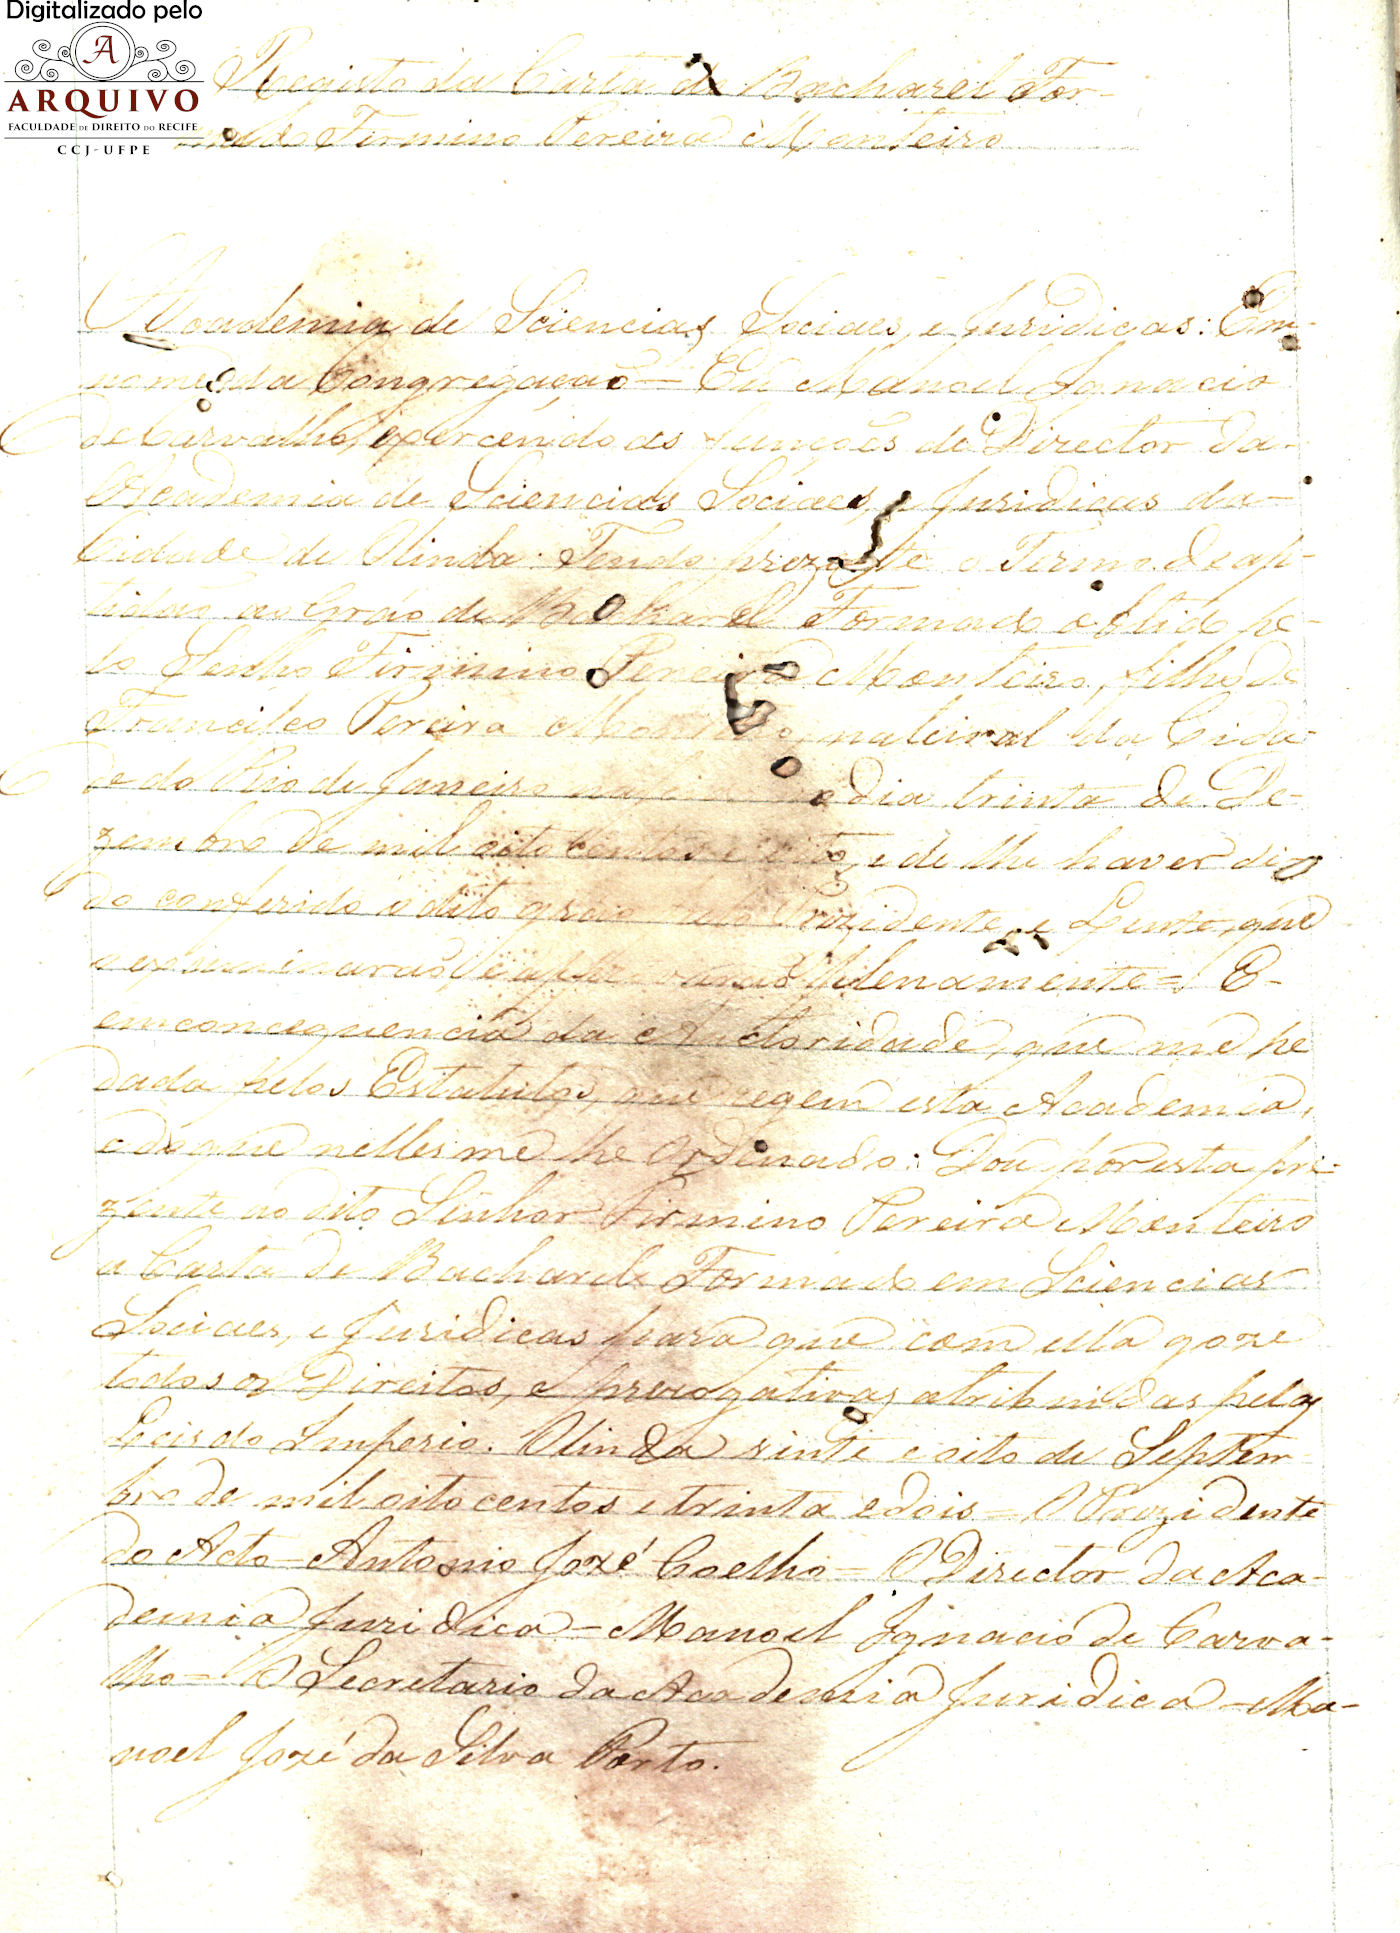 Digitalizado pelo
A
ARQUIVO
FACULDADE DE DIREITO DO RECIFE
CCJ-UFPE
Registo da Carta de Bacharel For-
mado Firmino Pereira Monteiro
Academia de Sciencias Sociaes, e Juridicas: Em
nome da Congregação = Eu Manoel Ignacio
de Carvalho, exercendo as funções de Director da
Academia de Sciencias Sociaes, e Juridicas da
Cidade de Olinda. Tendo prezente o Termo de ap-
tidão ao Gráo de Bacharel Formado obtido pe-
lo Senho Firmino Pereira Monteiro, filho de
Francisco Pereira Monteiro, natural da Cida
de do Rio de Janeiro dia trinta de De-
zembro de mil oito centos e oito, e de lhe haver si
do conferido o dito gráo pelo Prezidente, e Lente, que
o examinarão, e approvarão plenamente = E
em concequencia da Auctoridade, que me he
dada pelos Estatutos, que regem esta Academia,
e do que nelles me he ordenado: Dou por esta pre-
zente ao dito Senhor Firmino Pereira Monteiro
a Carta de Bacharel Formado em Sciencias
Sociaes, e Juridicas para que com ella goze
todos os Direitos, e prerogativas atribuidas pelas
Leis do Imperio. Olinda vinte e oito de Septem
bro de mil oito centos e trinta e dois = O Prezidente
do Acto = Antonio Jozé Coelho = O Director da Aca-
demia Juridica = Manoel Ignacio de Carva-
lho = O Secretario da Academia Juridica = Ma-
noel Jozé da Silva Porto.